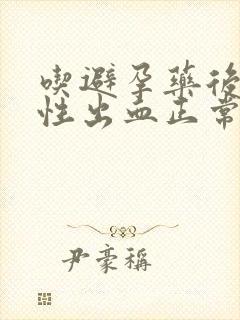 喫避孕藥後
性出血正常
尹豪稱